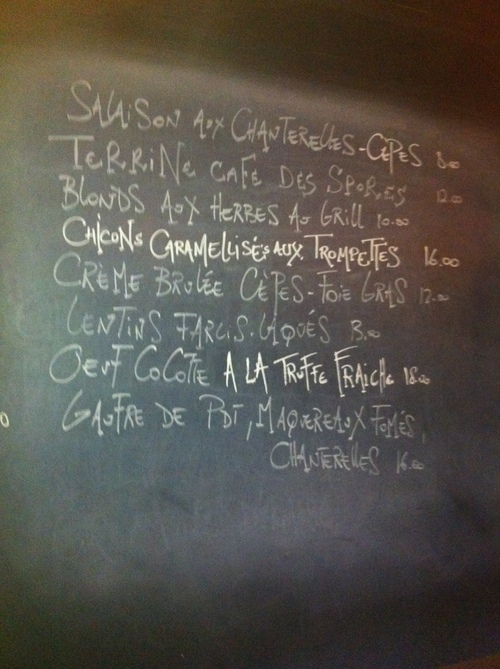 SALAISON AUX CHANTERELLES-CÈPES 8.00
TERRINE CAFÉ DES SPORES 12.00
BLONDS AUX HERBES AU GRILL 10.00
CHICONS CARAMELLISÉS AUX TROMPETTES 16.00
CRÈME BRULÉE CÈPES-FOIE GRAS 12.00
LENTINS FARCIS-LAQUÉS 13.00
OEUF COCOTTE A LA TRUFFE FRAICHE 18.00
GAUFRE DE PDT, MAQUEREAUX FUMÉS,
CHANTERELLES 16.00